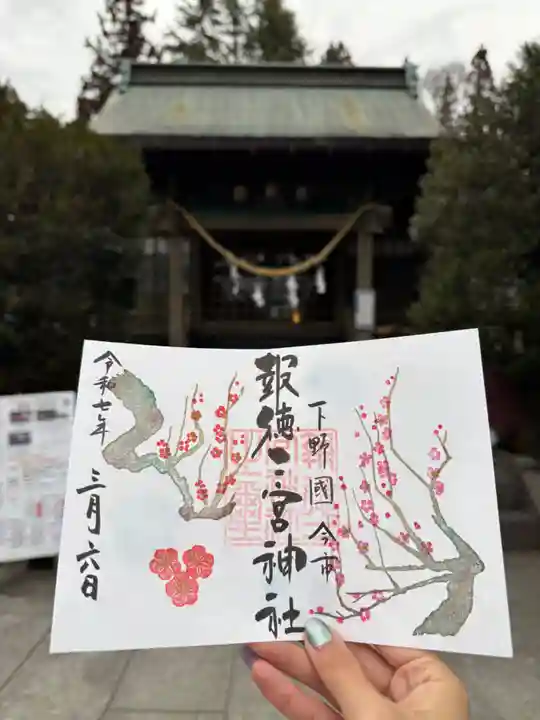 下野國今市
報徳二宮神社
令和七年
三月六日